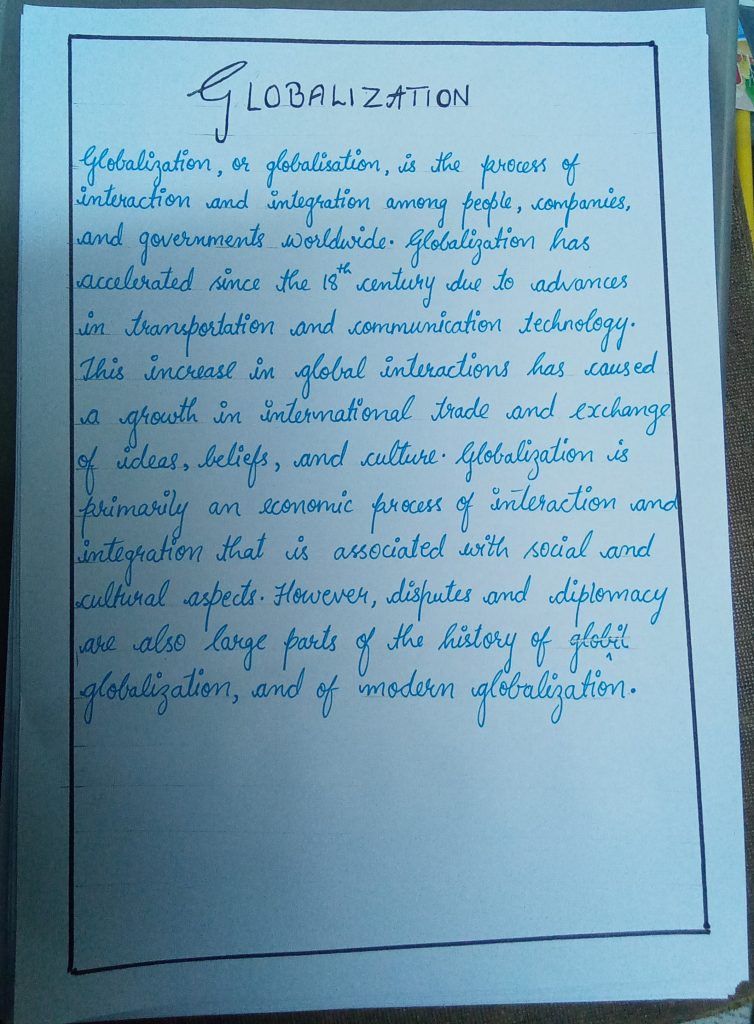 GLOBALIZATION
Globalization, or globalisation, is the process of
interaction and integration among people, companies,
and governments worldwide. Globalization has
accelerated since the 18th century due to advances
in transportation and communication technology.
This increase in global interactions has caused
a growth in international trade and exchange
of ideas, beliefs, and culture. Globalization is
primarily an economic process of interaction and
integration that is associated with social and
cultural aspects. However, disputes and diplomacy
are also large parts of the history of globil
globalization, and of modern globalization.